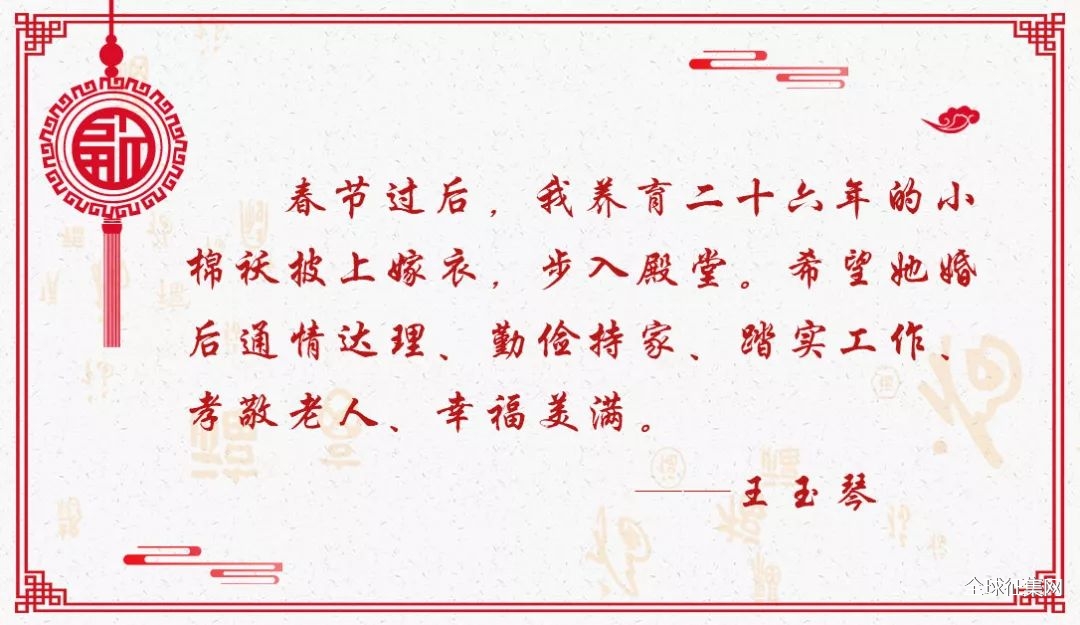 春节过后，我养育二十六年的小
棉袄披上嫁衣，步入殿堂。希望她婚
后通情达理、勤俭持家、踏实工作、
孝敬老人、幸福美满。
——王玉琴
全球征集网